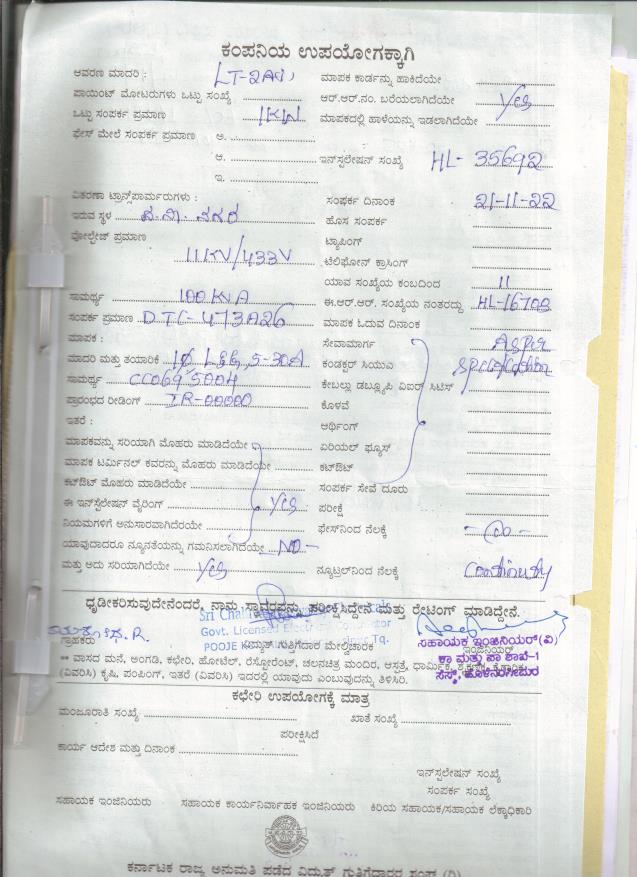 ಕಂಪನಿಯ ಉಪಯೋಗಕ್ಕಾಗಿ
ಆವರಣ ಮಾದರಿ : LT-2A(i) ಮಾಪಕ ಕಾರ್ಡನ್ನು ಹಾಕಿದೆಯೇ
ಪಾಯಿಂಟ್ ಮೋಟರುಗಳು ಒಟ್ಟು ಸಂಖ್ಯೆ ಆರ್.ಆರ್.ನಂ. ಬರೆಯಲಾಗಿದೆಯೇ Yes
ಒಟ್ಟು ಸಂಪರ್ಕ ಪ್ರಮಾಣ 1KW ಮಾಪಕದಲ್ಲಿ ಹಾಳೆಯನ್ನು ಇಡಲಾಗಿದೆಯೇ
ಫೇಸ್ ಮೇಲೆ ಸಂಪರ್ಕ ಪ್ರಮಾಣ ಅ.
ಆ. ಇನ್‌ಸ್ಪಲೇಷನ್ ಸಂಖ್ಯೆ HL- 35692
ಇ.
ವಿತರಣಾ ಟ್ರಾನ್ಸ್‌ಪಾರ್ಮರುಗಳು : ಸಂಪರ್ಕ ದಿನಾಂಕ 21-11-22
ಇರುವ ಸ್ಥಳ ನಗರ ಹೊಸ ಸಂಪರ್ಕ
ವೋಲ್ಟೇಜ್ ಪ್ರಮಾಣ ಟ್ಯಾಪಿಂಗ್
11KV/433V ಟೆಲಿಫೋನ್ ಕ್ರಾಸಿಂಗ್
ಯಾವ ಸಂಖ್ಯೆಯ ಕಂಬದಿಂದ 11
ಸಾಮರ್ಥ್ಯ 100KVA ಈ.ಆರ್.ಆರ್. ಸಂಖ್ಯೆಯ ನಂತರದ್ದು HL-16708
ಸಂಪರ್ಕ ಪ್ರಮಾಣ DTC-473026 ಮಾಪಕ ಓದುವ ದಿನಾಂಕ
ಮಾಪಕ : ಸೇವಾಮಾರ್ಗ As per
ಮಾದರಿ ಮತ್ತು ತಯಾರಿಕೆ 1Φ L&G, 5-30A ಕಂಡಕ್ಟರ್ ಸಿಯುವ specification
ಸಾಮರ್ಥ್ಯ CC0695004 ಕೇಬಲ್ಲು ಡಬ್ಲ್ಯೂಪಿ ವಿಐರ್ ಸಿಟಿಸ್
ಪ್ರಾರಂಭದ ರೀಡಿಂಗ್ IR-00000 ಕೊಳವೆ
ಇತರೆ : ಆರ್ಥಿಂಗ್
ಮಾಪಕವನ್ನು ಸರಿಯಾಗಿ ಮೊಹರು ಮಾಡಿದೆಯೇ ಏರಿಯಲ್ ಫ್ಯೂಸ್
ಮಾಪಕ ಟರ್ಮಿನಲ್ ಕವರನ್ನು ಮೊಹರು ಮಾಡಿದೆಯೇ ಕಟ್‌ಔಟ್
ಕಟ್‌ಔಟ್ ಮೊಹರು ಮಾಡಿದೆಯೇ ಸಂಪರ್ಕ ಸೇವೆ ದೂರು
ಈ ಇನ್‌ಸ್ಟೆಲೇಷನ್ ವೈರಿಂಗ್ Yes ಪರೀಕ್ಷೆ
ನಿಯಮಗಳಿಗೆ ಅನುಸಾರವಾಗಿದೆಯೇ ಫೇಸ್‌ನಿಂದ ನೆಲಕ್ಕೆ
ಯಾವುದಾದರೂ ನ್ಯೂನತೆಯನ್ನು ಗಮನಿಸಲಾಗಿದೆಯೇ NO -
ಮತ್ತು ಅದು ಸರಿಯಾಗಿದೆಯೇ Yes ನ್ಯೂಟ್ರಲ್‌ನಿಂದ ನೆಲಕ್ಕೆ Continuity
ಧೃಡೀಕರಿಸುವುದೇನೆಂದರೆ, ನಾನು ಸ್ಥಾವರವನ್ನು ಪರೀಕ್ಷಿಸಿದ್ದೇನೆ ಮತ್ತು ರೇಟಿಂಗ್ ಮಾಡಿದ್ದೇನೆ.
Govt. Licensed
ಗ್ರಾಹಕರು ವಿದ್ಯುತ್ ಗುತ್ತಿಗೆದಾರ ಮೇಲ್ವಿಚಾರಕ ಸಹಾಯಕ ಇಂಜಿನಿಯರ್ (ವಿ)
POOJE Tq. ಇಂಜಿನಿಯರ್
ಕಾ ಮತ್ತು ಪಾ ಶಾಖೆ-1
** ವಾಸದ ಮನೆ, ಅಂಗಡಿ, ಕಛೇರಿ, ಹೋಟೆಲ್, ರೆಸ್ಟೋರೆಂಟ್, ಚಲನಚಿತ್ರ ಮಂದಿರ, ಆಸ್ಪತ್ರೆ, ಧಾರ್ಮಿಕ,
(ವಿವರಿಸಿ) ಕೃಷಿ, ಪಂಪಿಂಗ್, ಇತರೆ (ವಿವರಿಸಿ) ಇದರಲ್ಲಿ ಯಾವುದು ಎಂಬುವುದನ್ನು ತಿಳಿಸಿರಿ.
ಸೆಸ್ಕ್, ಹೊಳೆನರಸೀಪುರ
ಕಛೇರಿ ಉಪಯೋಗಕ್ಕೆ ಮಾತ್ರ
ಮಂಜೂರಾತಿ ಸಂಖ್ಯೆ ಖಾತೆ ಸಂಖ್ಯೆ
ಪರೀಕ್ಷಿಸಿದೆ
ಕಾರ್ಯ ಆದೇಶ ಮತ್ತು ದಿನಾಂಕ
ಇನ್‌ಸ್ಪಲೇಷನ್ ಸಂಖ್ಯೆ
ಸಂಪರ್ಕ ಸಂಖ್ಯೆ
ಸಹಾಯಕ ಇಂಜಿನಿಯರು ಸಹಾಯಕ ಕಾರ್ಯನಿರ್ವಾಹಕ ಇಂಜಿನಿಯರು ಕಿರಿಯ ಸಹಾಯಕ/ಸಹಾಯಕ ಲೆಕ್ಕಾಧಿಕಾರಿ
ಕರ್ನಾಟಕ ರಾಜ್ಯ ಅನುಮತಿ ಪಡೆದ ವಿದ್ಯುತ್ ಗುತ್ತಿಗೆದಾರರ ಸಂಘ (ರಿ)